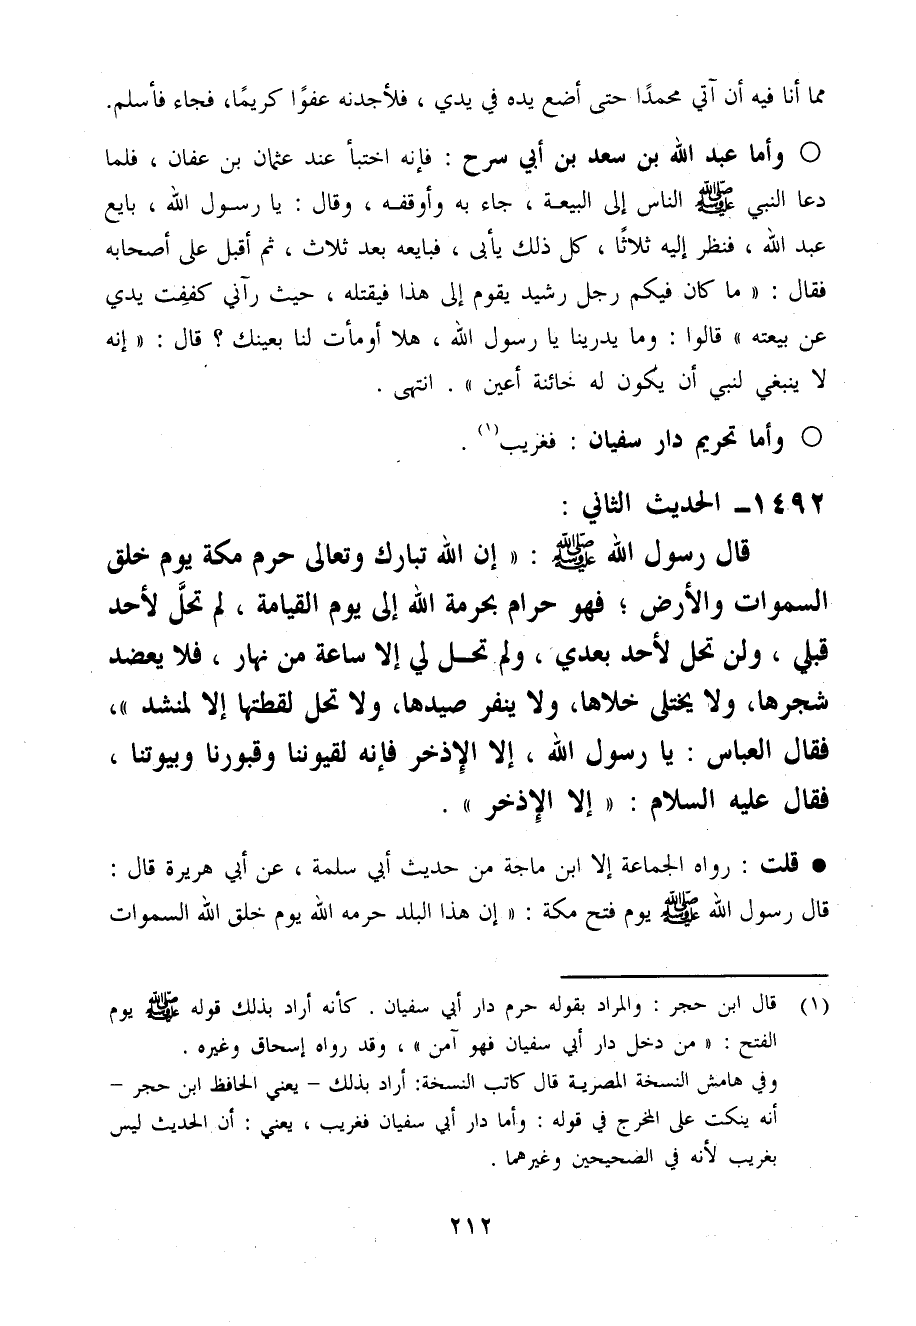 مما أنا فيه أن آتي محمدًا حتى أضع يده في يدي ، فلأجدنه عفوًا كريمًا، فجاء فأسلم.
○ وأما عبد الله بن سعد بن أبي سرح : فإنه اختبأ عند عثمان بن عفان ، فلما
دعا النبي ﷺ الناس إلى البيعـة ، جاء به وأوقفـه ، وقال : يا رسـول الله ، بايع
عبد الله ، فنظر إليه ثلاثًا ، كل ذلك يأبى ، فبايعه بعد ثلاث ، ثم أقبل على أصحابه
فقال : « ما كان فيكم رجل رشيد يقوم إلى هذا فيقتله ، حيث رآني كففت يدي
عن بيعته » قالوا : وما يدرينا يا رسول الله ، هلا أومأت لنا بعينك ؟ قال : « إنه
لا ينبغي لنبي أن يكون له خائنة أعين » . انتهى .
○ وأما تحريم دار سفيان : فغريب(١) .
١٤٩٢ـ الحديث الثاني :
قال رسول الله ﷺ : « إن الله تبارك وتعالى حرم مكة يوم خلق
السموات والأرض ؛ فهو حرام بحرمة الله إلى يوم القيامة ، لم تحلَّ لأحد
قبلي ، ولن تحل لأحد بعدي ، ولم تحـل لي إلا ساعة من نهار ، فلا يعضد
شجرها، ولا يختلى خلاها، ولا ينفر صيدها، ولا تحل لقطتها إلا لمنشد »،
فقال العباس : يا رسول الله ، إلا الإذخر فإنه لقيوننا وقبورنا وبيوتنا ،
فقال عليه السلام : « إلا الإذخر » .
● قلت : رواه الجماعة إلا ابن ماجة من حديث أبي سلمة ، عن أبي هريرة قال :
قال رسول الله ﷺ يوم فتح مكة : « إن هذا البلد حرمه الله يوم خلق الله السموات
(١) قال ابن حجر : والمراد بقوله حرم دار أبي سفيان . كأنه أراد بذلك قوله ﷺ يوم
الفتح : « من دخل دار أبي سفيان فهو آمن » ، وقد رواه إسحاق وغيره .
وفي هامش النسخة المصرية قال كاتب النسخة: أراد بذلك – يعني الحافظ ابن حجر –
أنه ينكت على المخرج في قوله : وأما دار أبي سفيان فغريب ، يعني : أن الحديث ليس
بغريب لأنه في الصحيحين وغيرهما .
٢١٢